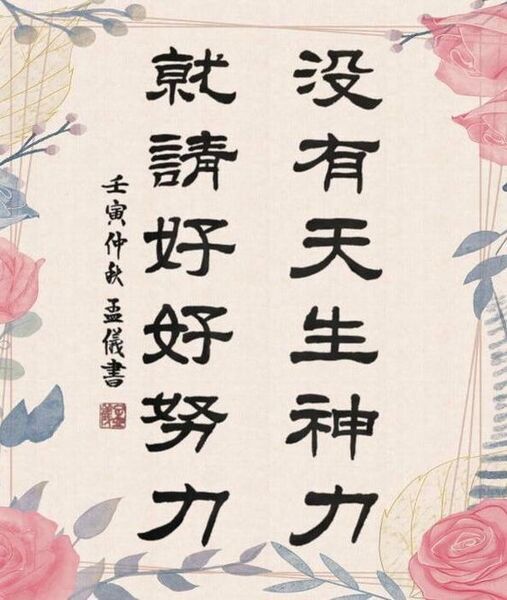 没有天生神力
就請好好努力
壬寅仲秋 孟儀書